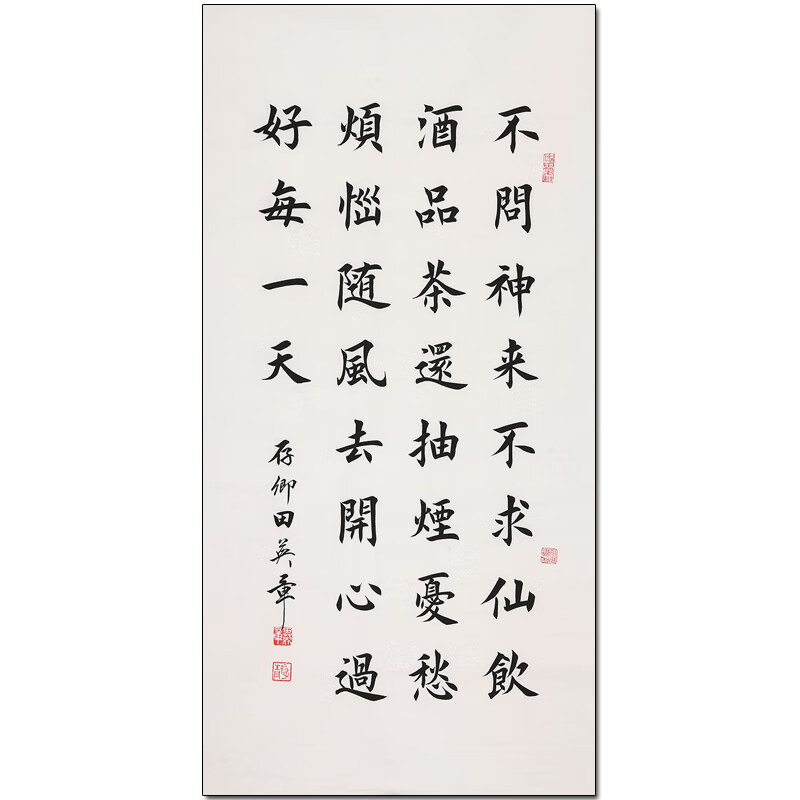 不問神来不求仙飲
酒品茶還抽煙憂愁
煩惱随風去開心過
好每一天
存卿田英章